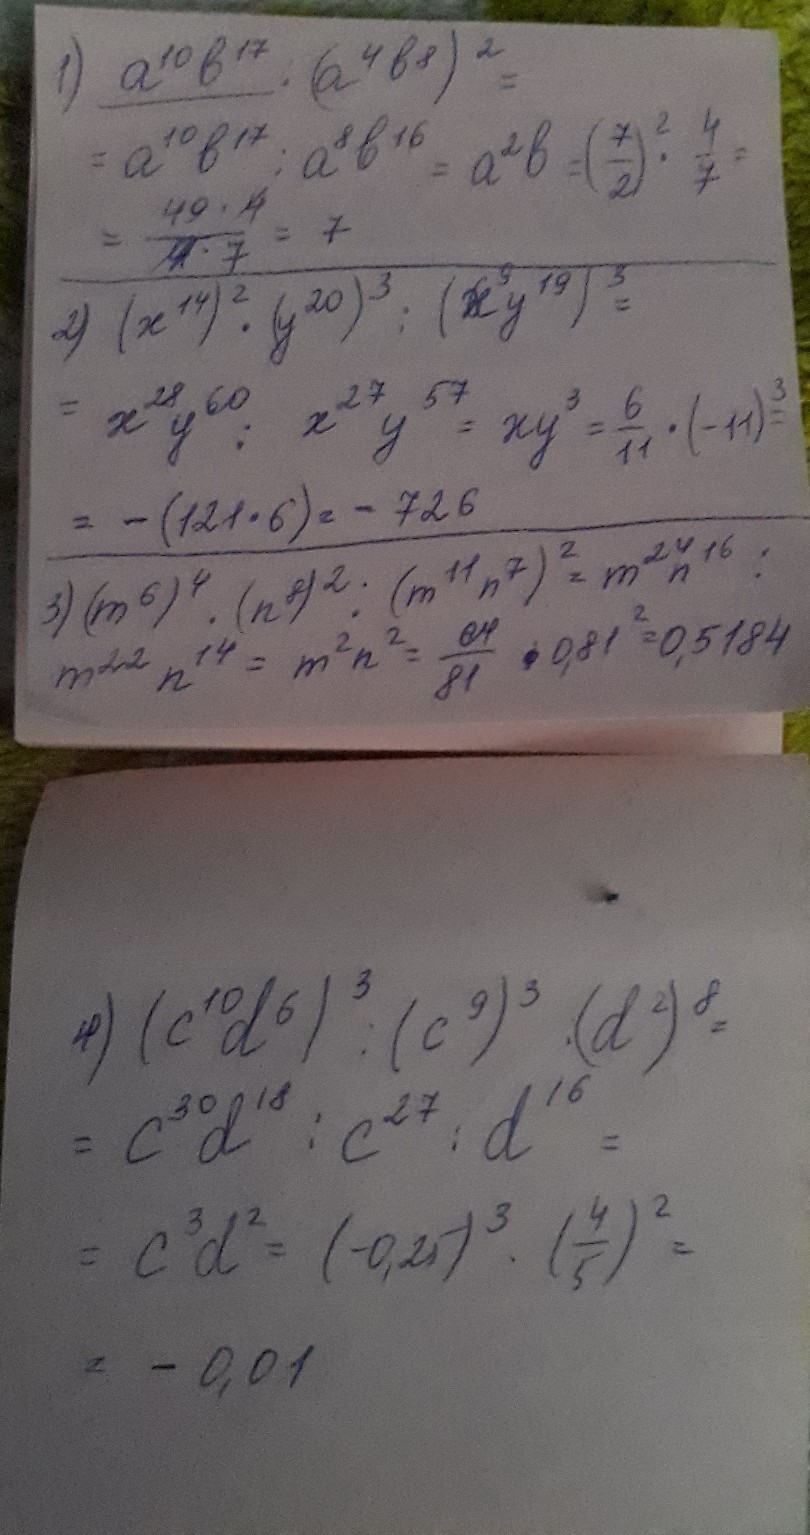 1) a¹⁰b¹⁷ : (a⁴b⁸)² =
= a¹⁰b¹⁷ : a⁸b¹⁶ = a²b = (7/2)² · 4/7 =
= 49 · 4 / 4 · 7 = 7
2) (x¹⁴)² · (y²⁰)³ : (x⁹y¹⁹)³ =
= x²⁸y⁶⁰ : x²⁷y⁵⁷ = xy³ = 6/11 · (-11)³ =
= - (121 · 6) = - 726
3) (m⁶)⁴ · (n⁸)² : (m¹¹n⁷)² = m²⁴n¹⁶ :
m²²n¹⁴ = m²n² = 64/81 · 0,81² = 0,5184
4) (c¹⁰d⁶)³ : (c⁹)³ · (d²)⁸ =
= c³⁰d¹⁸ : c²⁷ : d¹⁶ =
= c³d² = (-0,25)³ · (4/5)² =
= - 0,01